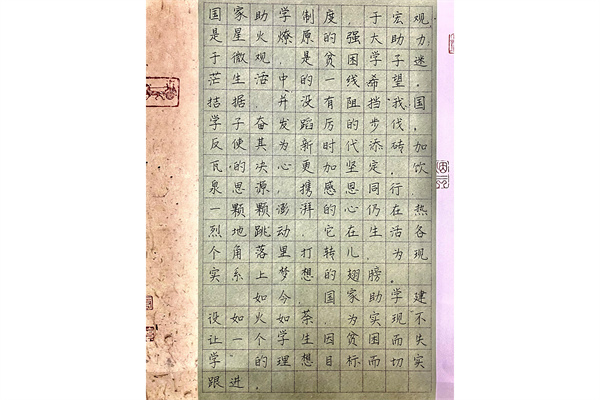 国家助学制度,于宏观
是星火燎原的强大助力
于微观,是贫困学子迷
茫生活中的一线希望.
拮据,并没有阻挡我国
学子奋发蹈厉的步伐,
反使其为新时代添砖加
瓦的决心更加坚定.饮
泉思源,携感恩同行.
一颗颗澎湃的心仍在热
烈地跳动.它在生活各
个角落里打转儿.为现
实系上梦想的翅膀.
如今.国家助学建
设如火如荼 为实现不
让一个学生因贫困而失
学的理想目标而切实
跟进.